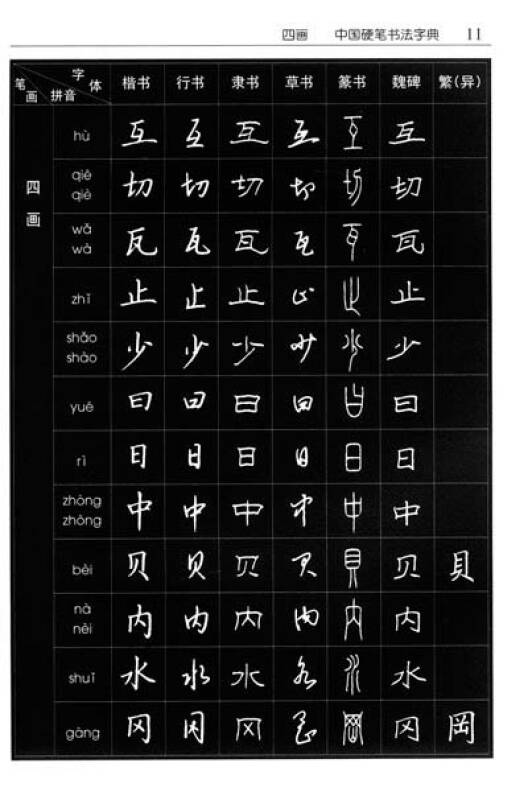 四画 中国硬笔书法字典 11
笔画 拼音 字体 楷书 行书 隶书 草书 篆书 魏碑 繁(异)
四画
hù 互 互 互 互 互 互
qiē qiè 切 切 切 切 切 切
wǎ wà 瓦 瓦 瓦 瓦 瓦 瓦
zhǐ 止 止 止 止 止 止
shǎo shào 少 少 少 少 少 少
yuē 曰 曰 曰 曰 曰 曰
rì 日 日 日 日 日 日
zhòng zhōng 中 中 中 中 中 中
bèi 贝 贝 贝 贝 貝 贝 貝
nà nèi 内 内 内 内 内 内
shuǐ 水 水 水 水 水 水
gāng 冈 冈 冈 冈 冈 冈 岡